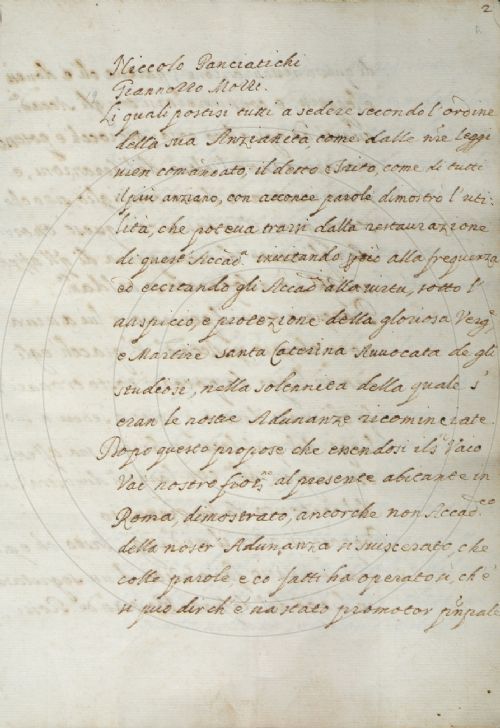 2
Niccolo Panciatichi
Giannozzo
Li quali postisi tutti a sedere secondo l'ordine
della sua Anzianità come dalle nre leggi
vien comandato, il detto come di tutti
il più anziano, con acconce parole dimostrò l'uti-
lità, che poteva trarsi dalla restaurazione
di quest' Accad.ᵃ incitando alla frequenza
ed eccitando gli Accad. alla virtù, sotto l'
auspicio, e protezione della gloriosa Verg.ᵉ
e Martire Santa Caterina Avvocata de gli
studiosi, nella solennità della quale s'
eran le nostre Adunanze ricominciate.
Dopo questo propose che essendosi il S.
nostro al presente abitante in
Roma, dimostrato, ancorche non Accad.ᶜᵒ
della nostr Adunanza si sviscerato, che
colle parole e co fatti ha operato sì, ch'e
si può dir ch' è na stato promotor